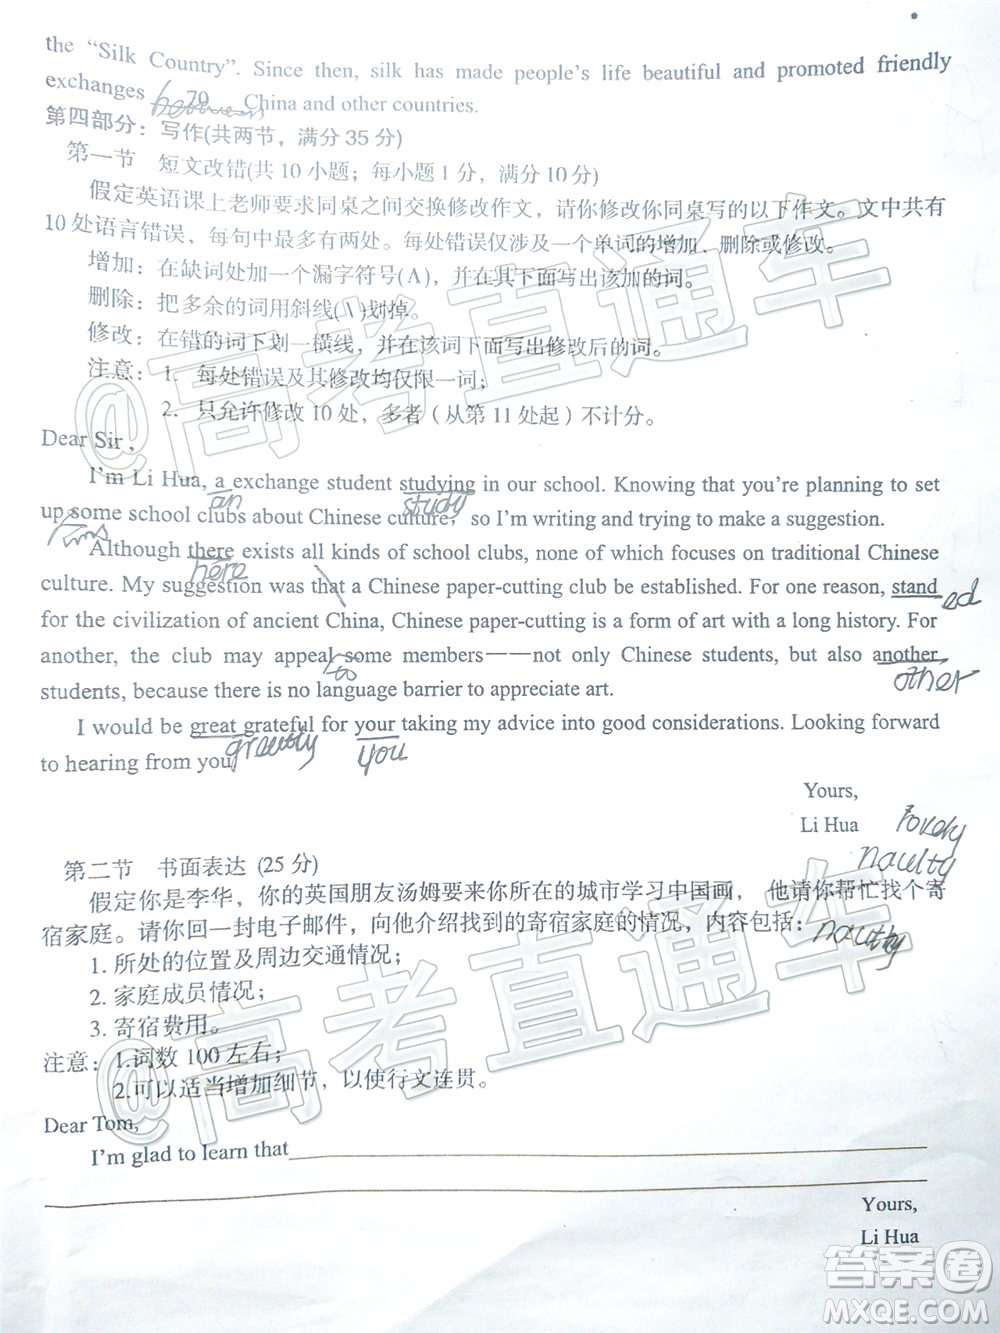 the “Silk Country”. Since then, silk has made people’s life beautiful and promoted friendly
exchanges 70 China and other countries.
between
第四部分：写作(共两节，满分 35 分)
第一节 短文改错(共 10 小题；每小题 1 分，满分 10 分)
假定英语课上老师要求同桌之间交换修改作文，请你修改你同桌写的以下作文。文中共有
10 处语言错误，每句中最多有两处。每处错误仅涉及一个单词的增加、删除或修改。
增加：在缺词处加一个漏字符号(Λ)，并在其下面写出该加的词。
删除：把多余的词用斜线(\)划掉。
修改：在错的词下划一横线，并在该词下面写出修改后的词。
注意：1. 每处错误及其修改均仅限一词；
2. 只允许修改 10 处，多者（从第 11 处起）不计分。
Dear Sir ,
I’m Li Hua, a exchange student studying in our school. Knowing that you’re planning to set
an study
up some school clubs about Chinese culture, so I’m writing and trying to make a suggestion.
Although there exists all kinds of school clubs, none of which focuses on traditional Chinese
here
culture. My suggestion was that a Chinese paper-cutting club be established. For one reason, stand
ed
for the civilization of ancient China, Chinese paper-cutting is a form of art with a long history. For
another, the club may appeal some members——not only Chinese students, but also another
to other
students, because there is no language barrier to appreciate art.
I would be great grateful for your taking my advice into good considerations. Looking forward
you
to hearing from you
Yours,
Li Hua
第二节 书面表达 (25 分)
假定你是李华，你的英国朋友汤姆要来你所在的城市学习中国画，他请你帮忙找个寄
宿家庭。请你回一封电子邮件，向他介绍找到的寄宿家庭的情况，内容包括：
1. 所处的位置及周边交通情况；
2. 家庭成员情况；
3. 寄宿费用。
注意：1.词数 100 左右；
2.可以适当增加细节，以使行文连贯。
Dear Tom,
I’m glad to learn that
Yours,
Li Hua
@高考直通车
@高考直通车
答案圈
MXQE.COM